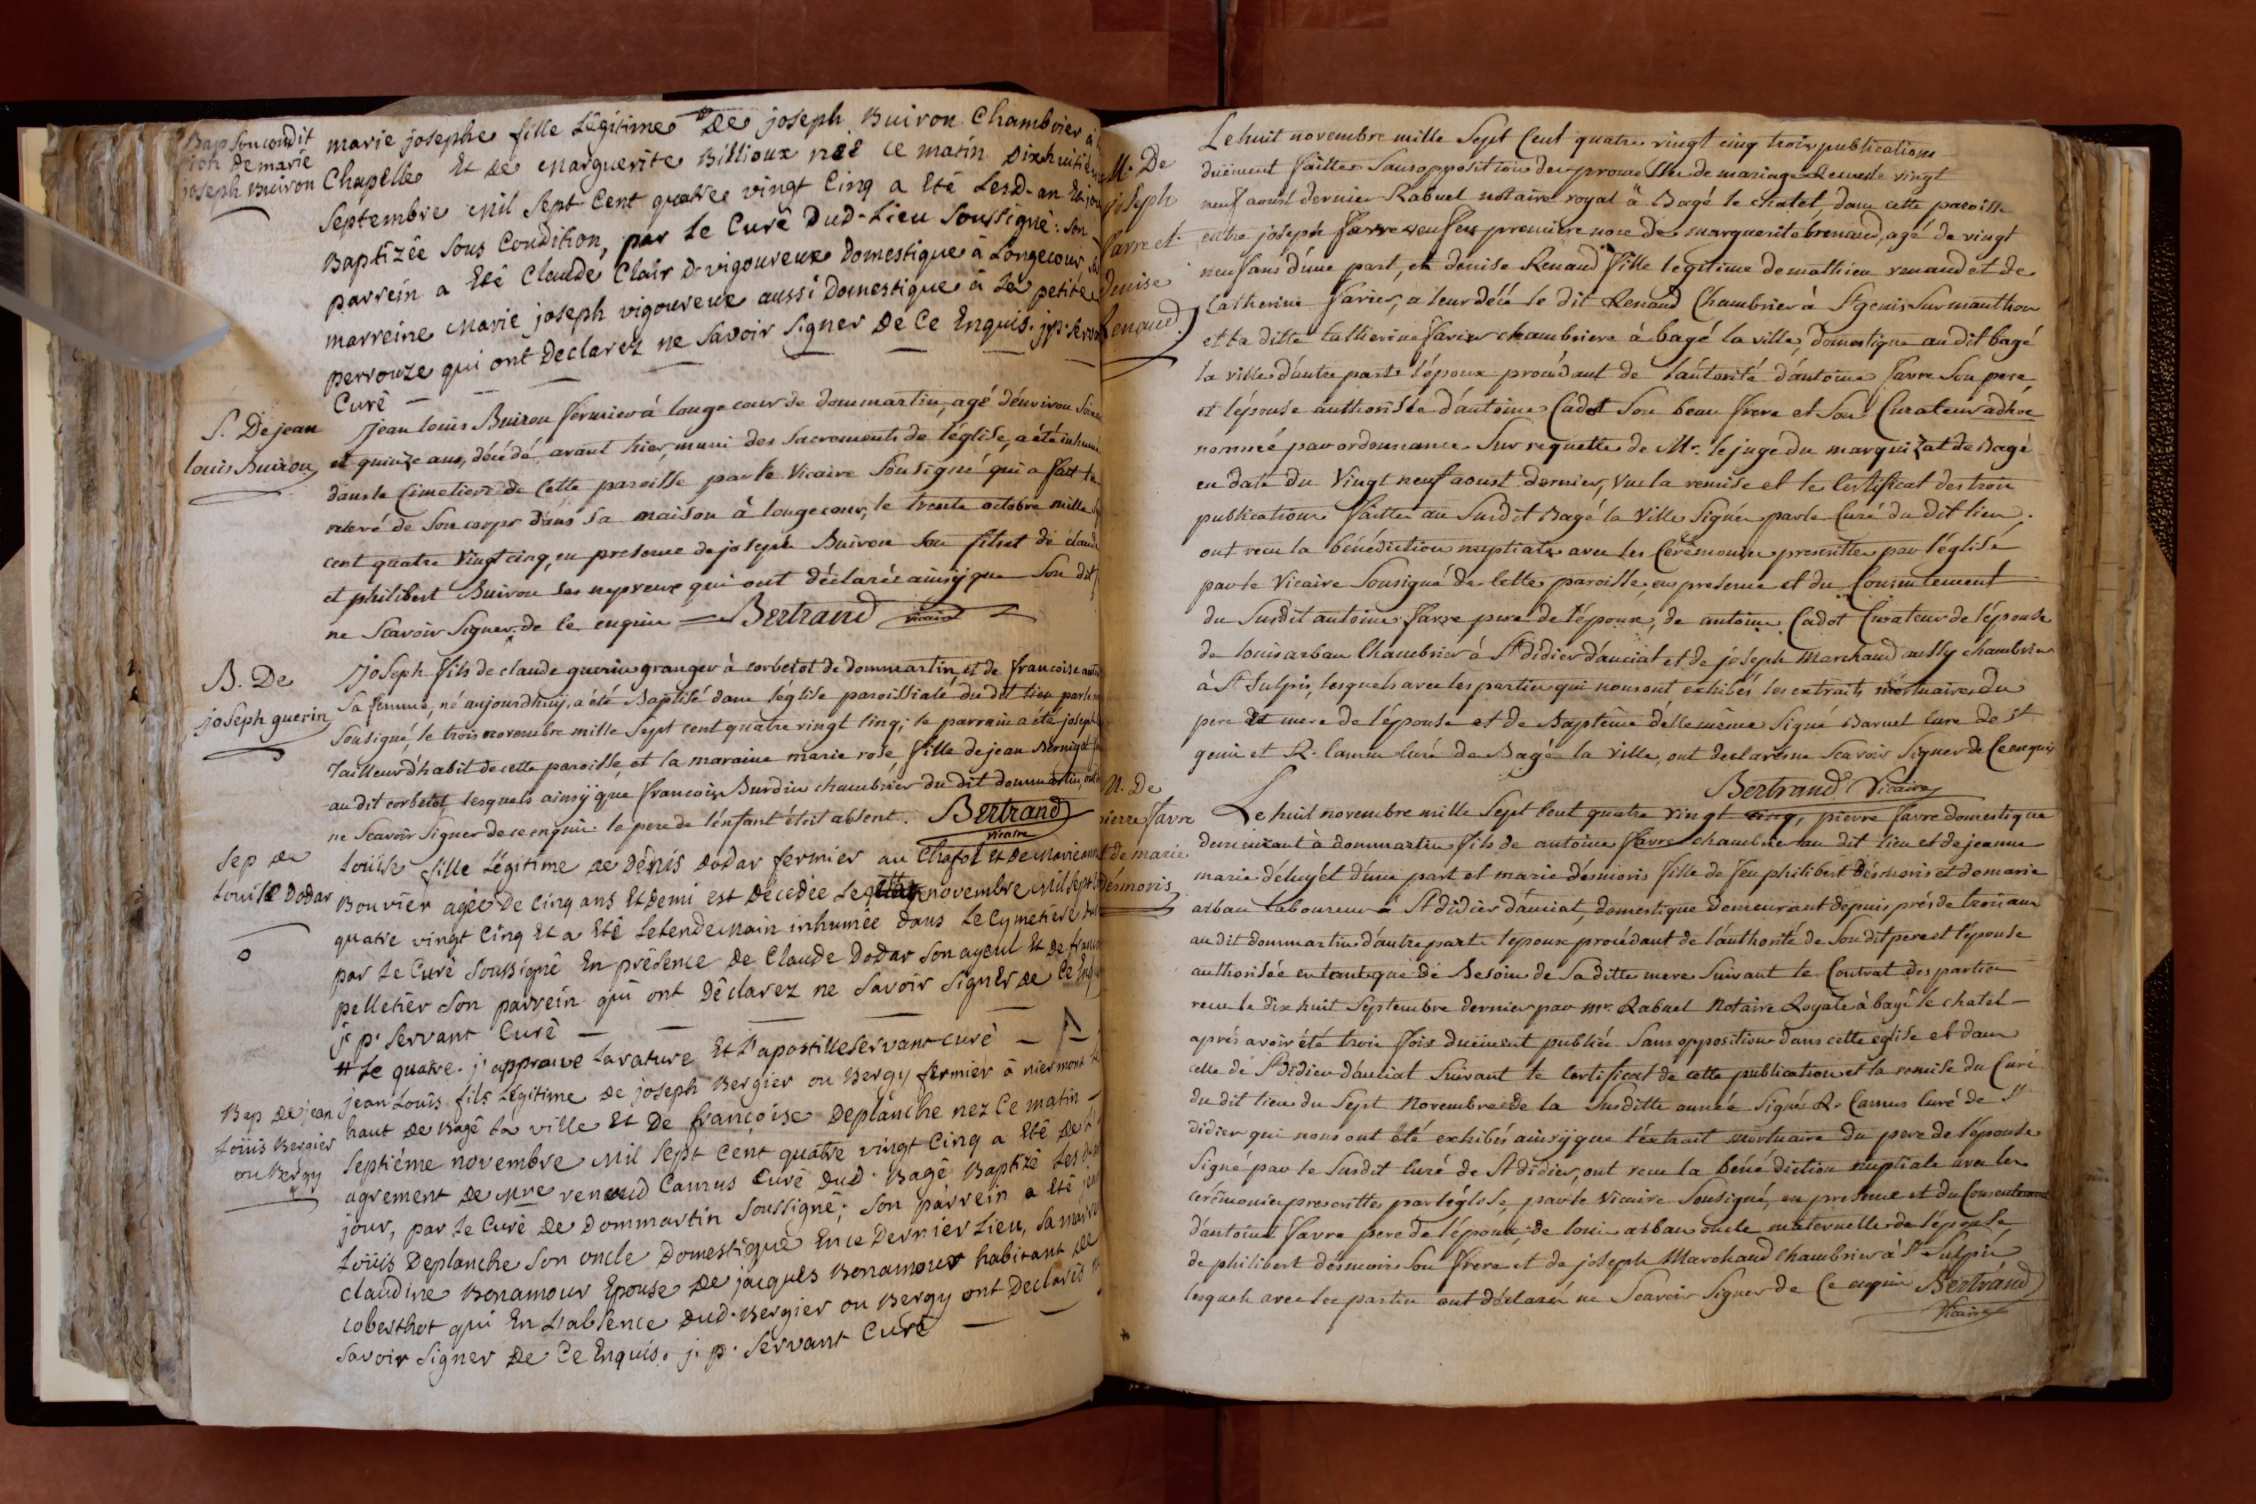 Bap Soucondit
tion De marie
joseph Buiron
marie josephe fille Légitime De joseph Buiron Chambrier à
Chapelle Et De Marguerite Billioux née ce matin Dixhuitième
Septembre Mil Sept Cent quatre vingt Cinq a Eté Lesd. an Et jour
Baptizée Sous Condition, par Le Curé Dud. Lieu Soussigné: Son
parrein a Eté Claude Clair D. vigoureux Domestique à Longecour, Sa
marreine Marie joseph vigoureux aussi Domestique à La petite
perrouze qui ont Declarez ne Savoir Signer De Ce Enquis. j. p. Servant
Curé
S. De jean
louis Buiron
Jean louis Buiron fermier à longecour de dommartin, agé d'environ
et quinze ans, décédé avant hier, muni des Sacrements de l'église, a été inhumé
dans le Cimetiere de Cette paroisse par le Vicaire Sousigné qui a fait la
levé de Son corps dans Sa maison à longecour, le trente octobre mille
cent quatre Vingt cinq, en presence de joseph Buiron Son fils et de claude
et philibert Buiron Ses nepveux qui ont déclarés ainsÿ que Son dit
ne Scavoir Signer de Ce enquis Bertrand vicaire
B. De
joseph guerin
Joseph fils de claude guerin granger à corbetot de dommartin, et de francoise
Sa femme, né aujourdhuy, a été Baptisé dans l'église paroissiale du dit lieu par le
Sousigné, le trois novembre mille Sept cent quatre vingt Cinq; le parrain a été joseph
Tailleur d'habit de cette paroisse, et la maraine marie rose, fille de jean
au dit corbetot, lesquels ainsÿ que francois Burdin chambrier du dit dommartin, ont
ne Scavoir Signer de ce enquis. le pere de l'enfant étoit absent. Bertrand
vicaire
Sep de
Louise Dodar
Louise fille Légitime de Dénis Dodar fermier au Chafol Et De Marie anne
Bouvier agée De Cinq ans Et Demi est Décédée Le novembre Mil Sept Cent
quatre vingt Cinq Et a Eté Le Lendemain inhumée Dans Le Cymetiére
par Le Curé Soussigné En présence De Claude Dodar Son ayeul Et De
pelletier Son parrein qui ont Déclarez ne Savoir Signer De Ce Enquis
j. p. Servant Curé
# Le quatre. j'approuve La rature Et L'apostille Servant Curé
Bap De jean
Loüis Bergier
ou Bergy
jean Louis fils Légitime De joseph Bergier ou Bergy fermier à niermont
haut De Bagé La ville Et De françoise Deplanche nez Ce matin
Septiéme novembre Mil Sept Cent quatre vingt Cinq a Eté De
agrement De Mre renaud Camus Curé Dud. Bagé Baptizé Les
jour, par Le Curé De Dommartin Soussigné; Son parrein a Eté
Loüis Deplanche Son oncle Domestique En ce Dernier Lieu, Sa marreine
claudine Bonamour Epouse De jacques Bonamour habitant De
cobesthot qui En L'absence Dud. Bergier ou Bergy ont Declarés
Savoir Signer De Ce Enquis. j. p. Servant Curé
M. De
joseph
favre et
Denise
Renaud
Le huit novembre mille Sept Cent quatre vingt cinq trois publications
duëment faittes Sans opposition des promesses de mariage Recues le vingt
neuf aoust dernier Rabuel notaire royal à Bagé le chatel, dans cette paroisse
entre joseph favre veuf en premiere noce de marguerite brenaud, agé de vingt
neuf ans d'une part, et denise Renaud fille legitime de mathieu renaud et de
Catherine Farier, a leur décé le dit Renaud Chambrier à St genis Sur manthon
et la ditte Catherine Farier chambriere à bagé la ville, domestique au dit bagé
la ville d'autre part l'époux procédant de l'autorité d'antoine favre Son pere,
et l'épouse authorisée d'antoine Cadot Son beau frere et Son Curateur adhoc
nommé par ordonnance Sur requette de Mr. le juge du marquizat de Bagé
en date du Vingt neuf aoust dernier, Vue la remise et le Certificat des trois
publications faittes au Susdit Bagé la Ville Signés par le Curé du dit lieu.
ont recu la bénédiction nuptiale avec les Cérémonies prescrittes par l'église
par le Vicaire Sousigné de Cette paroisse, en presence et du Consentement
du Susdit antoine favre pere de l'époux, de antoine Cadot Curateur de l'épouse
de louis arban Chambrier à St didier d'auciat et de joseph Marchand aussy chambrier
à St Sulpis, lesquels avec les parties qui nous ont exhibés les extraits mortuaires du
pere et mere de l'épouse et de Baptême d'elle même Signé Baruel Cure de st
genis et R. Camus Curé de Bagé la ville, ont declarés ne Scavoir Signer de Ce enquis
Bertrand Vicaire
M. De
pierre favre
et de marie
désmoris
Le huit novembre mille Sept Cent quatre vingt cinq, pierre favre domestique
demeurant à dommartin fils de antoine favre chambrier au dit lieu et de jeanne
marie déluyét d'une part et marie désmoris fille de feu philibert désmoris et de marie
arban laboureur à St didier d'auciat, domestique demeurant depuis près de trois ans
au dit dommartin d'autre part l'epoux procédant de l'authorité de Son dit pere et l'épouse
authorisée en tant que de Besoin de Sa ditte mere Suivant le Contrat des parties
recu le dix huit Septembre dernier par mr. Rabuel Notaire Royale à bagé le chatel
après avoir été trois fois duëment publiés Sans opposition dans cette eglise et dans
celle de St didier d'auciat Suivant le Certificat de cette publication et la remise du Curé
du dit lieu du Sept Novembre de la Susditte année Signé R. Camus Curé de St
didier qui nous ont été exhibés ainsÿ que l'éxtrait mortuaire du pere de l'épouse
Signé par le Susdit Curé de St didier, ont recu la bénédiction nuptiale avec les
cerémonies prescrittes par l'église, par le Vicaire Sousigné, en presence et du Consentement
d'antoine favre pere de l'époux, de louis arban oncle maternelle de l'épouse,
de philibert désmoris Son frere et de joseph Marchand chambrier à St Sulpis
lesquels avec les parties ont déclarés ne Scavoir Signer de Ce enquis Bertrand
Vicaire